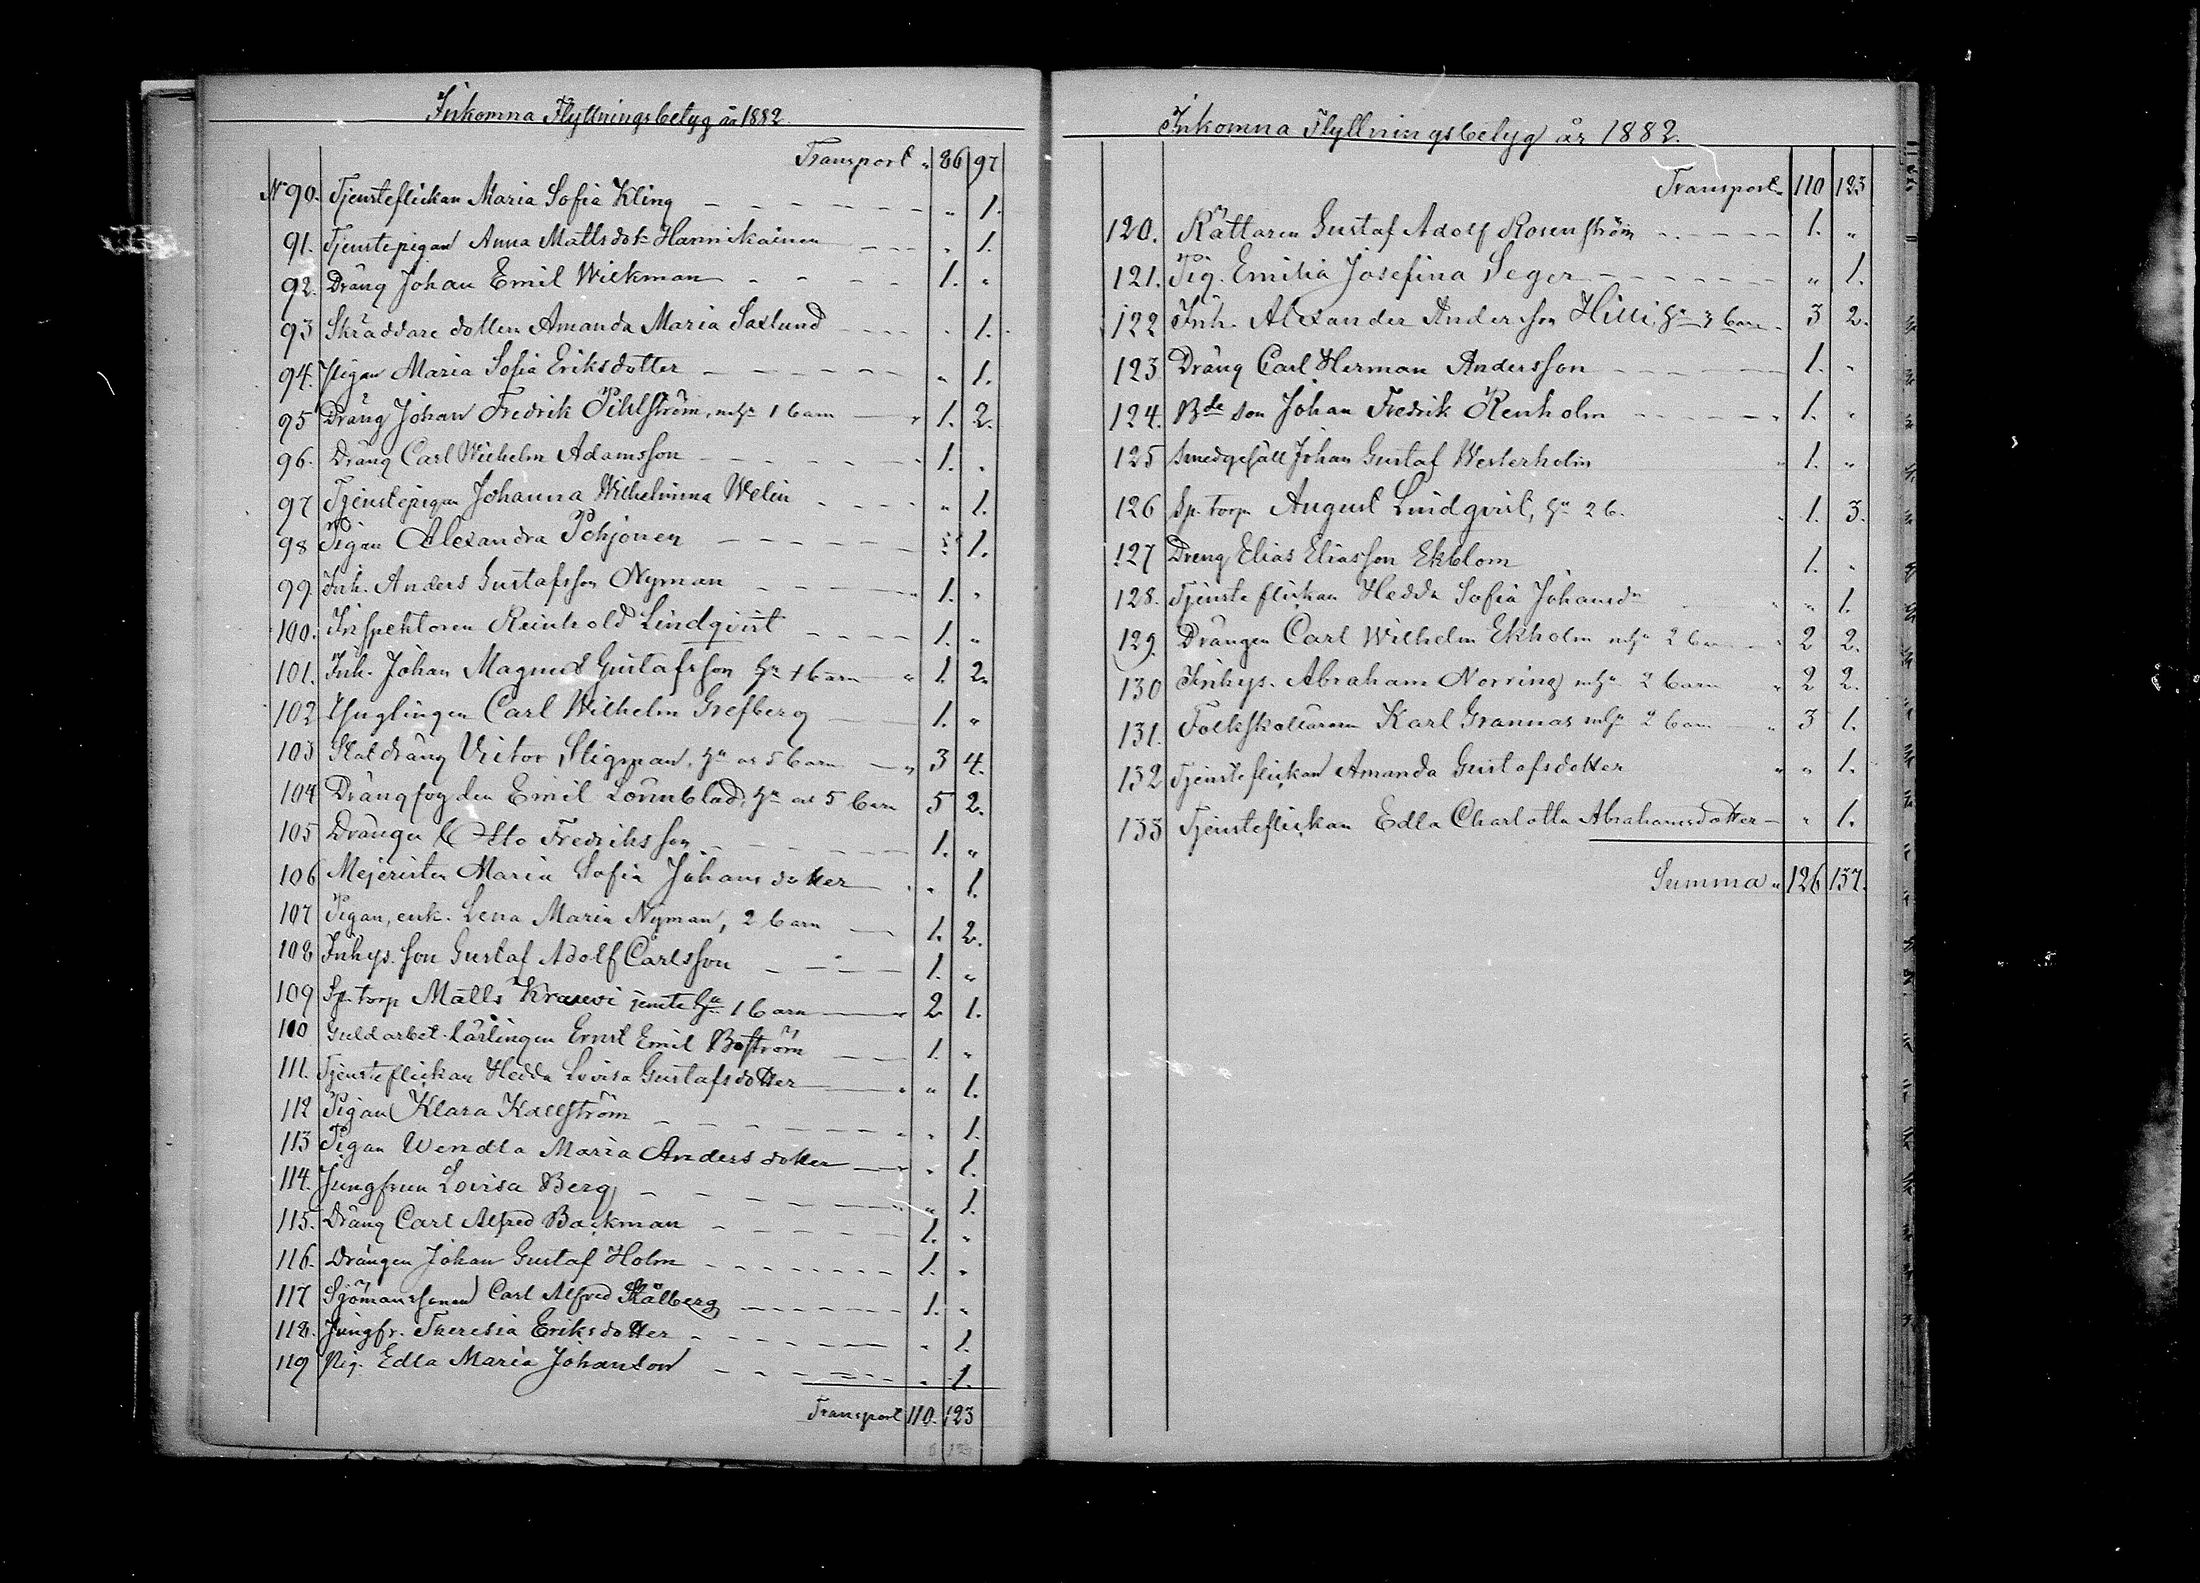 Inkomna Flyttningsbetyg år 1882.
Transport „ 86 97
No 90. Tjensteflickan Maria Sofia Kling „ 1.
91. Tjenstepigan Anna Mattsdotr Hannikainen „ 1.
92. Dräng Johan Emil Wickman 1. „
93 Skräddare dottern Amanda Maria Saxlund „ 1.
94. Pigan Maria Sofia Eriksdotter „ 1.
95 Dräng Johan Fredrik Pihlström, m hu 1 barn „ 1. 2.
96. Dräng Carl Wilhelm Adamsson 1. „
97 Tjenstepigan Johanna Wilhelmina Welin „ 1.
98 Pigan Alexandra Pohjonen „ 1.
99. Inh. Anders Gustafsson Nyman 1. „
100. Inspektoren Reinhold Lindqvist 1. „
101. Inh. Johan Magnus Gustafsson hu 1 barn „ 1. 2.
102 Ynglingen Carl Wilhelm Grefberg 1. „
103 Statdräng Victor Stigman, hu o 5 barn „ 3 4.
104 Drängfogden Emil Lönnblad, hu o 5 barn 5 2.
105 Drängen Otto Fredriksson 1. „
106 Mejeristen Maria Sofia Johansdotter „ 1.
107 Pigan, enk. Lena Maria Nyman, 2 barn 1. 2.
108 Inhys. son Gustaf Adolf Carlsson 1. „
109 Sp. torp Matts jemte hu 1 barn 2 1.
110 Guldarbet. lärlingen Ernst Emil Boström 1. „
111. Tjensteflickan Hedda Lovisa Gustafsdotter „ 1.
112 Pigan Klara Kallström „ 1.
113 Pigan Wendla Maria Andersdotter „ 1.
114. Jungfrun Lovisa Berg „ 1.
115. Dräng Carl Alfred Backman 1. „
116. Drängen Johan Gustaf Holm 1. „
117 Sjömanssonen Carl Alfred Stålberg 1. „
118. Jungfr. Theresia Eriksdotter „ 1.
119 Pig. Edla Maria Johanson „ 1.
Transport 110. 123
Inkomna Flyttningsbetyg år 1882.
Transport „ 110 123
120. Rättaren Gustaf Adolf Rosenström 1. „
121. Pig. Emilia Josefina Seger „ 1.
122 Inh. Alexander Andersson Hilli, hu 3 barn 3 2.
123 Dräng Carl Herman Andersson 1. „
124. Bde son Johan Fredrik Renholm „ 1. „
125 Smedgesäll Johan Gustaf Westerholm „ 1. „
126 Sp. torp. August Lindqvist, hu 2 b. „ 1. 3.
127 Dreng Elias Eliasson Ekblom 1. „
128. Tjenste flickan Hedda Sofia Johansdr „ „ 1.
129. Drängen Carl Wilhelm Ekholm m hu 2 barn „ 2 2.
130 Inhys. Abraham Norring m hu 2 barn „ 2 2.
131. Folkskolläraren Karl Grannas m hu 2 barn „ 3 1.
132 Tjensteflickan Amanda Gustafsdotter „ „ 1.
133 Tjensteflickan Edla Charlotta Abrahamsdotter „ 1.
Summa „ 126 137.